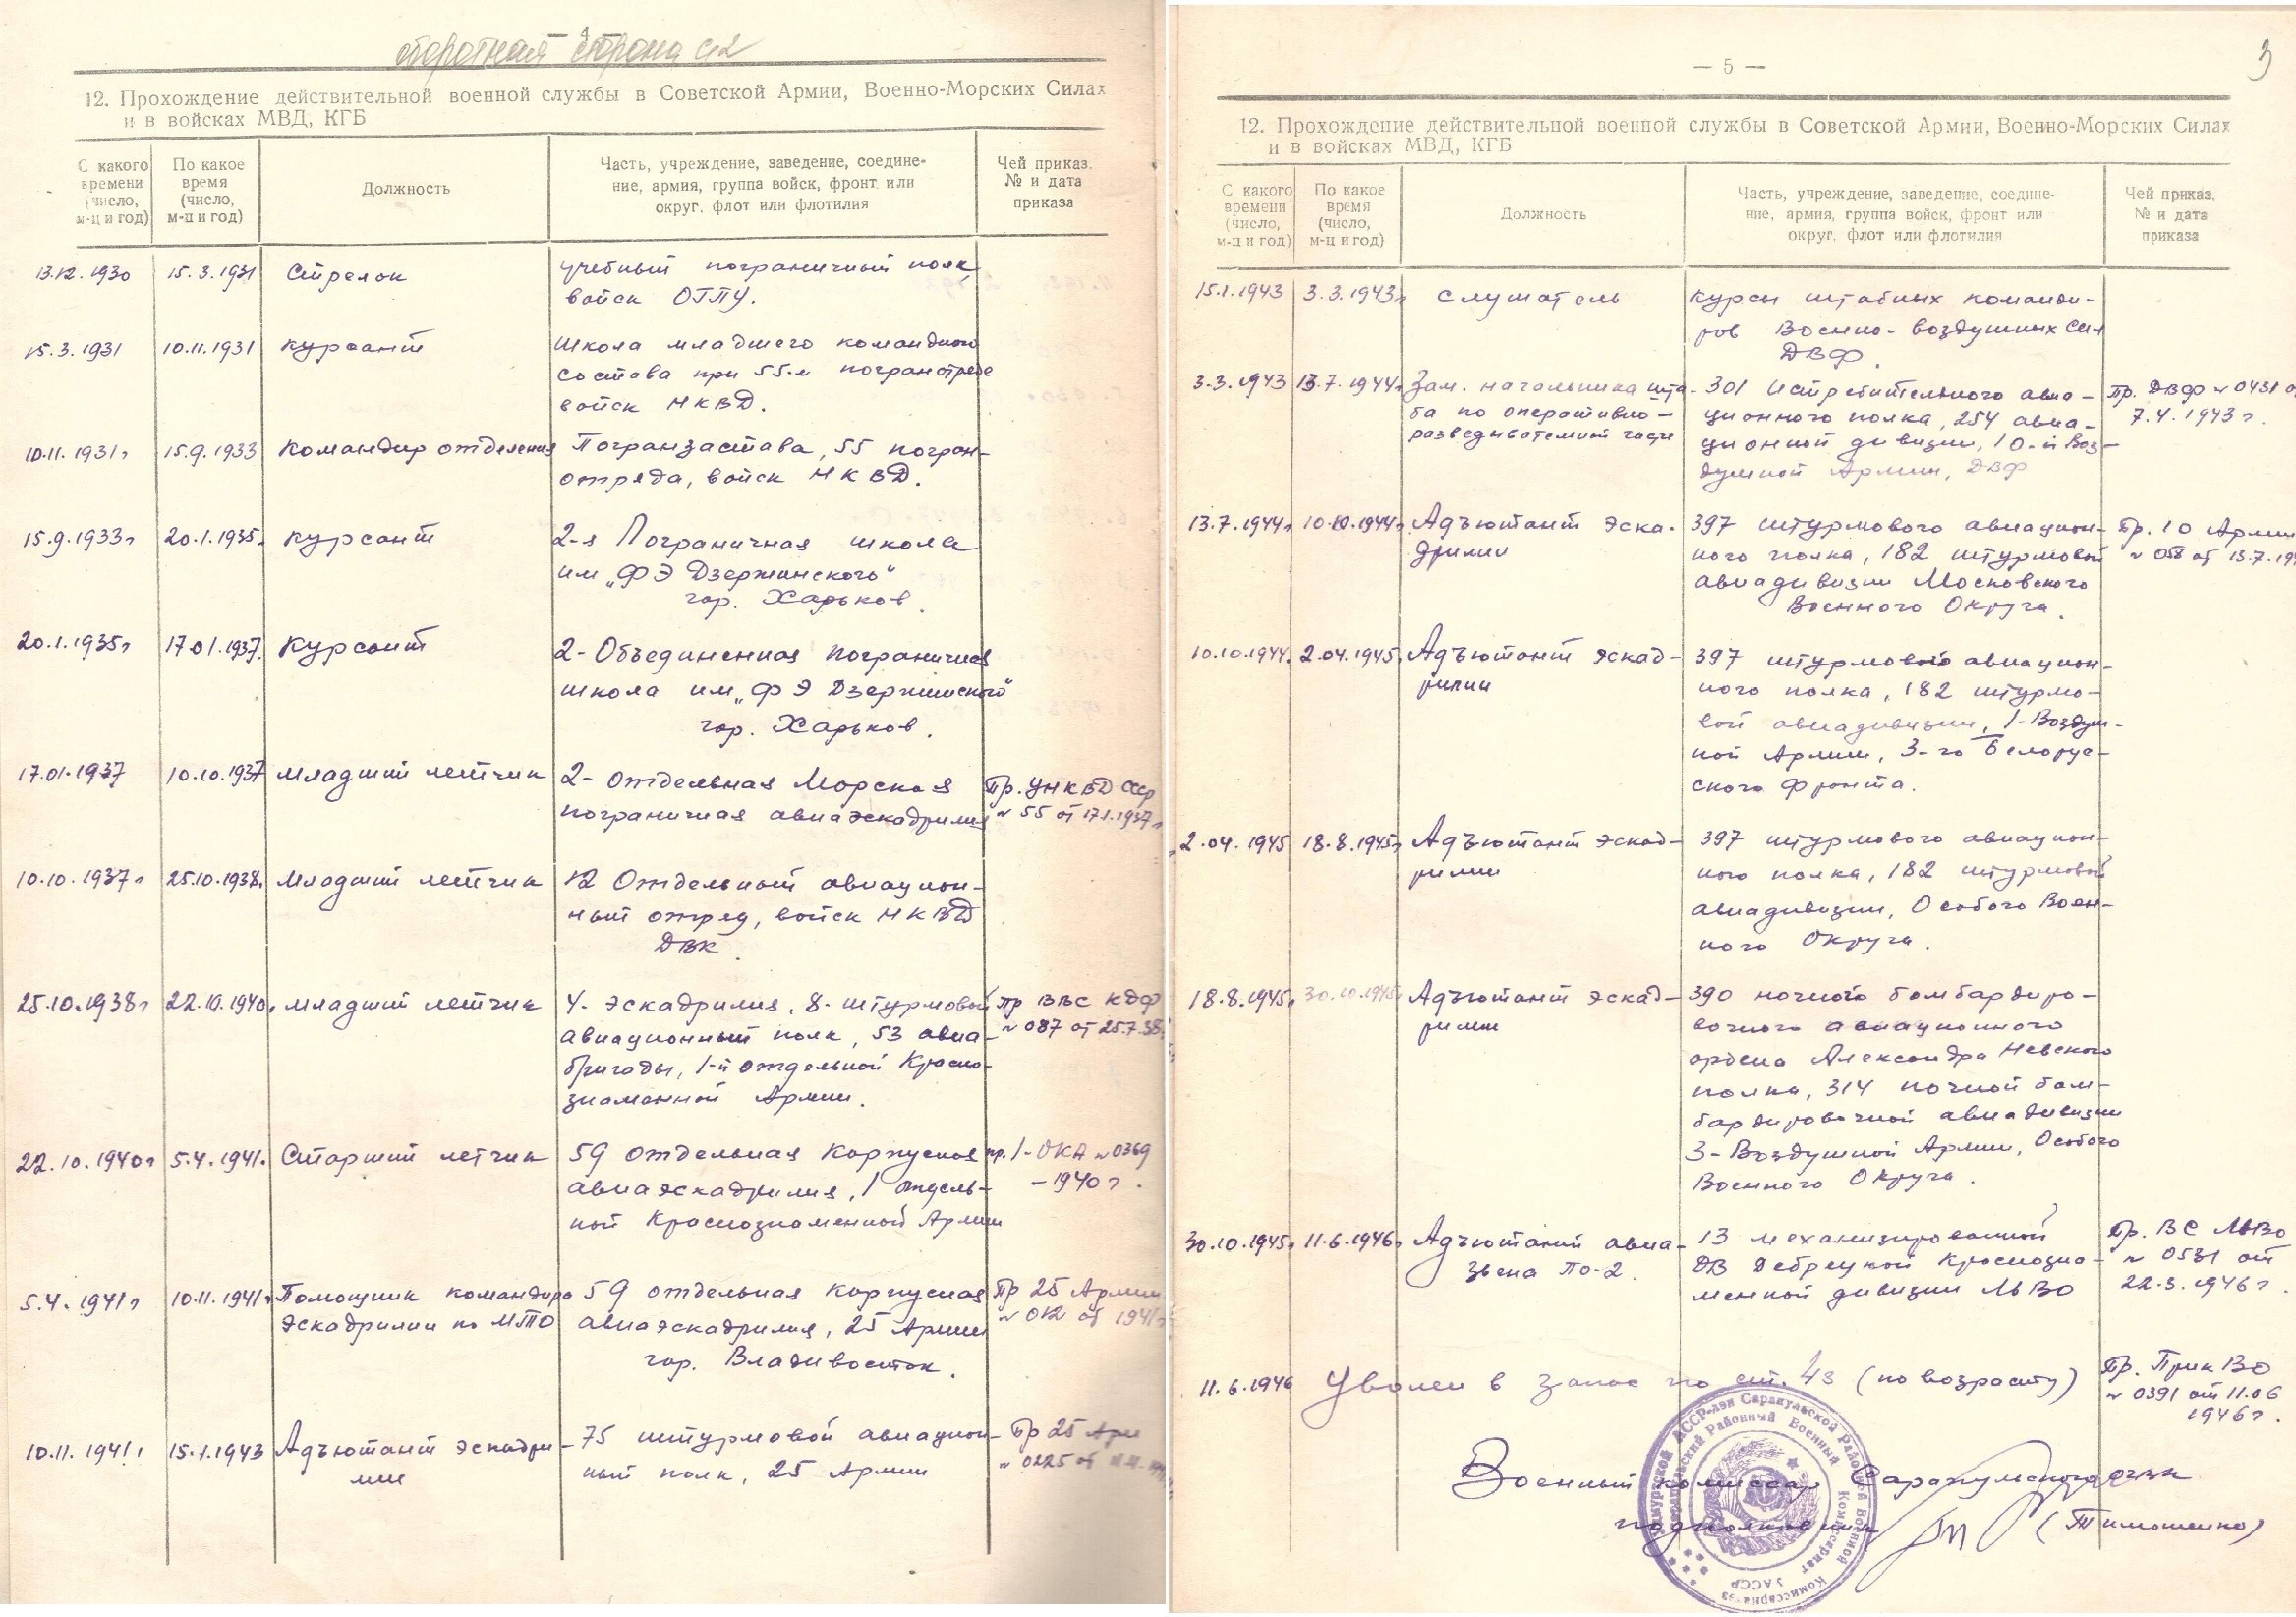 — 4 —
оборотная сторона с 2
12. Прохождение действительной военной службы в Советской Армии, Военно-Морских Силах
и в войсках МВД, КГБ
С какого времени (число, м-ц и год)
По какое время (число, м-ц и год)
Должность
Часть, учреждение, заведение, соедине-
ние, армия, группа войск, фронт или
округ, флот или флотилия
Чей приказ, № и дата приказа
13.12.1930 15.3.1931 Стрелок учебный пограничный полк
войск ОГПУ.
15.3.1931 10.11.1931 курсант Школа младшего командного
состава при 55-м погранотряде
войск НКВД.
10.11.1931г 15.9.1933 Командир отделения Погранзастава, 55 погран-
отряда, войск НКВД.
15.9.1933г 20.1.1935г курсант 2-я Пограничная школа
им „ФЭ Дзержинского"
гор. Харьков.
20.1.1935г 17.01.1937. Курсант 2-Объединенная пограничная
школа им „ФЭ Дзержинского"
гор. Харьков.
17.01.1937 10.10.1937 младший летчик 2-отдельная Морская Пр. УНКВД СССР
пограничная авиаэскадрилия № 55 от 17.1.1937г
10.10.1937г 25.10.1938г. Младший летчик 12 Отдельный авиацион-
ный отряд, войск НКВД
ДВК.
25.10.1938г 22.10.1940г младший летчик 4. эскадрилия, 8-штурмовой пр ВВС КДФ
авиационный полк, 53 авиа- № 087 от 25.7.38.
бригады, 1-й отдельной Красно-
знаменной Армии.
22.10.1940г 5.4.1941г. Старший летчик 59 отдельная Корпусная пр. 1-ОКА № 0369
авиаэскадрилия, 1 отдель- – 1940г.
ной Краснознаменной Армии
5.4.1941г 10.11.1941г Помощник командира 59 отдельная корпусная Пр 25 Армии
эскадрилии по МТО авиаэскадрилия, 25 Армии № 012 от 1941г
гор. Владивосток.
10.11.1941г 15.1.1943 Адъютант эскадри- 75 штурмовой авиацион- Пр 25 Арм
лии ный полк, 25 Армии № 0225 от
— 5 —
3
12. Прохождение действительной военной службы в Советской Армии, Военно-Морских Силах
и в войсках МВД, КГБ
С какого времени (число, м-ц и год)
По какое время (число, м-ц и год)
Должность
Часть, учреждение, заведение, соедине-
ние, армия, группа войск, фронт или
округ, флот или флотилия
Чей приказ, № и дата приказа
15.1.1943 3.3.1943г слушатель курсы штабных команди-
ров Военно-воздушных сил
ДВФ.
3.3.1943 13.7.1944г Зам. начальника шта- 301 Истребительного авиа- Пр. ДВФ № 0431 от
ба по оперативно- ционного полка, 254 авиа- 7.4.1943г.
разведывательной части ционной дивизии, 10-й Воз-
душной Армии, ДВФ
13.7.1944г 10.10.1944г Адъютант эска- 397 штурмового авиацион- Пр. 10 Армии
дрилии ного полка, 182 штурмовой № 058 от 13.7.19
авиадивизии Московского
Военного Округа.
10.10.1944г 2.04.1945г Адъютант эскад- 397 штурмового авиацион-
рилии ного полка, 182 штурмо-
вой авиадивизии, 1-Воздуш-
ной Армии, 3-го Белорус-
ского фронта.
2.04.1945 18.8.1945г Адъютант эскад- 397 штурмового авиацион-
рилии ного полка, 182 штурмовой
авиадивизии, Особого Воен-
ного Округа.
18.8.1945г 30.10.1945г Адъютант эскад- 390 ночного бомбардиро-
рилии вочного авиационного
ордена Александра Невского
полка, 314 ночной бом-
бардировочной авиадивизии
3-Воздушной Армии, Особого
Военного Округа.
30.10.1945г 11.6.1946г Адъютант авиа- 13 механизированной Пр. ВС ЛьВО
звена По-2. ДВ Дебрецкой Краснозна- № 0531 от
менной дивизии ЛьВО 22.3.1946г.
11.6.1946 Уволен в запас по ст. 43 (по возрасту) Пр. ПрикВО
№ 0391 от 11.06
1946г.
Военный комиссар Сарапульского
подполковник (Тимошенко)